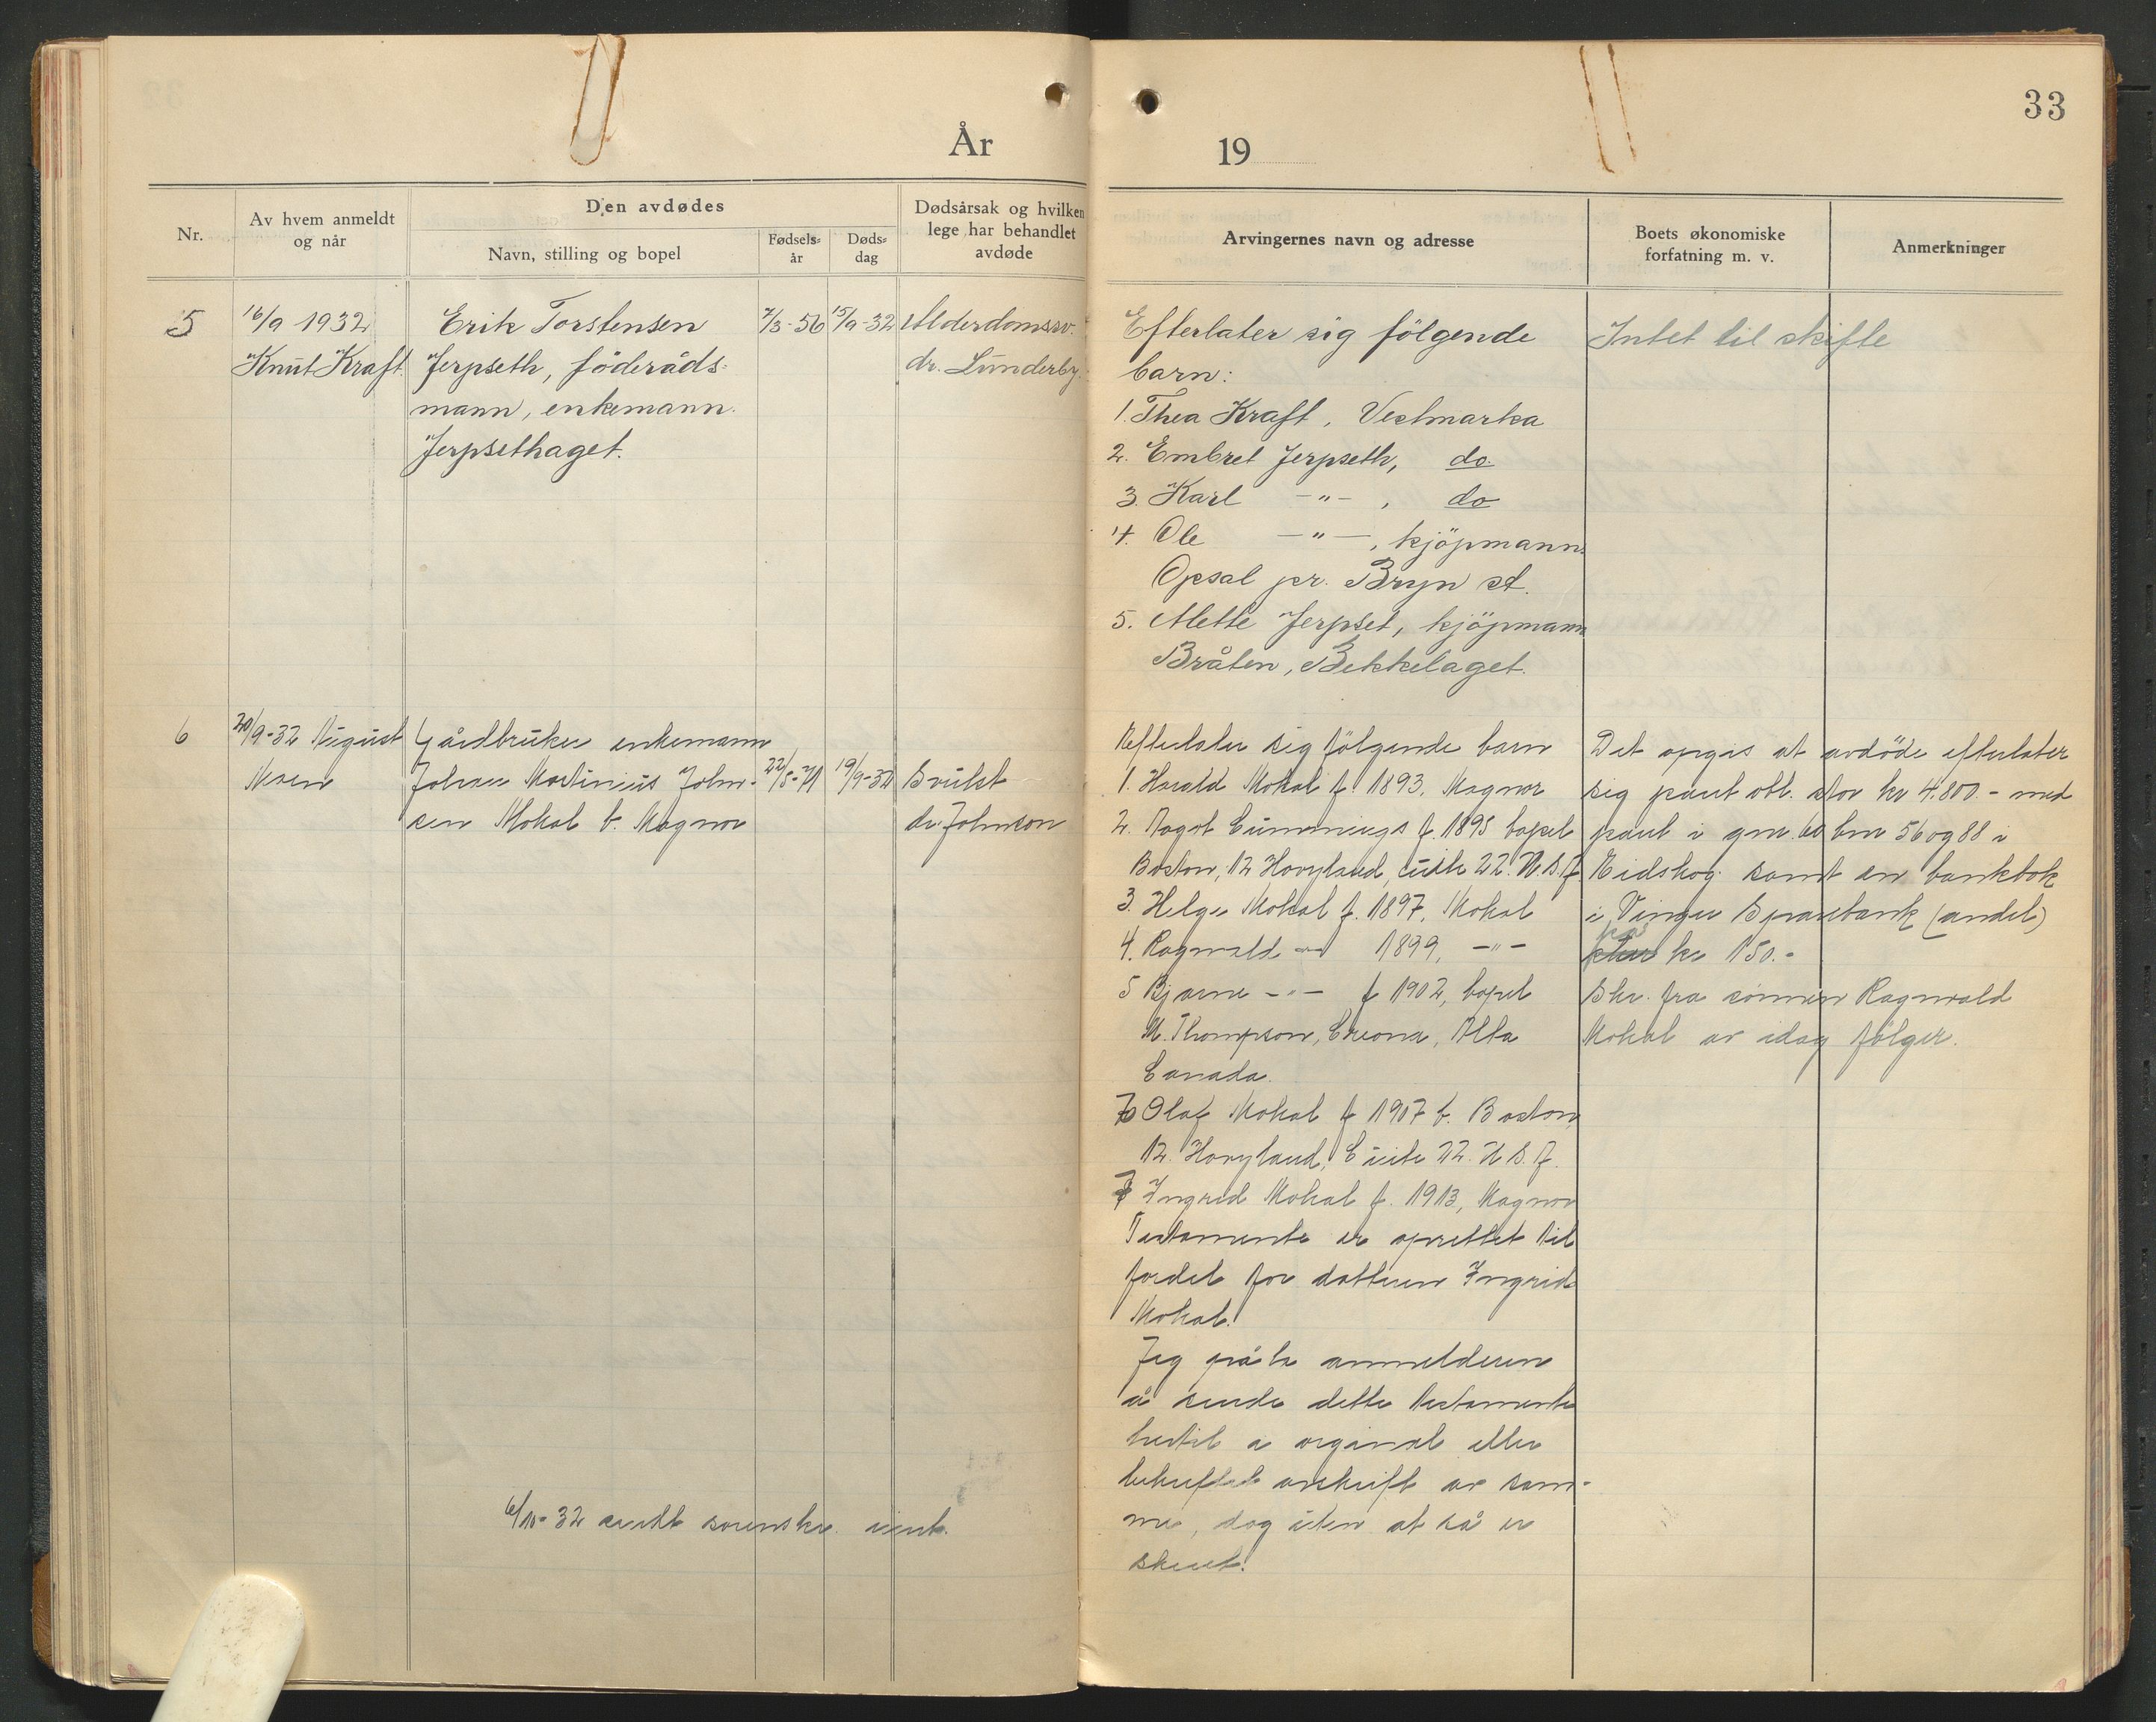 33
År 19
Nr.
Av hvem anmeldt
og når
Den avdødes
Navn, stilling og bopel
Fødsels-
år
Døds-
dag
Dødsårsak og hvilken
lege har behandlet
avdøde
Arvingernes navn og adresse
Boets økonomiske
forfatning m. v.
Anmerkninger
5
16/9 1932
Knut Kraft
Erik Torstensen
Jerpseth, föderåds-
mann, enkemann.
Jerpsethaget.
7/3-56
15/9-32
Alderdomssv.
dr. Lunderby.
Efterlater sig følgende
barn:
1. Thea Kraft, Vestmarka
2. Embret Jerpseth, do
3. Karl -"-, do
4. Ole -"-, kjöpmann
Opsal pr. Bryn st.
5. Alette Jerpset, kjöpmann
Bråten, Bekkelaget.
Intet til skifte
6
20/9-32 August
Moen
Gårdbruker enkemann
Johan Martinius John-
sen Mokal b. Magnor
22/8-71
19/9-32
Svulst
dr. Johnson
Efterlater sig følgende barn
1. Harald Mokal f 1893, Magnor
2. Aagot Cummings f. 1895 bopel
Boston, 12 Hovyland, Suite 22. U.S.A.
3. Helge Mokal f. 1897, Mokal
4. Ragnvald -"- 1899, -"-
5 Bjarne -"- f 1902, bopel
M. Thompson, Creona, Alta
Canada.
6 Olaf Mokal f 1907 b. Boston
12. Hovyland, Suite 22. U.S.A.
7 Ingrid Mokal f. 1913, Magnor
Testamente er oprettet til
fordel for datteren Ingrid
Mokal.
Jeg påla anmelderen
å sende dette testamente
hertil i orginal eller
bekreftet avskrift av sam-
me, dog uten at så er
skeet.
Det opgis at avdöde efterlater
sig pant obl. stor kr 4.800.- med
pant i gnr. 60 bnr 56 og 88 i
Eidskog samt en bankbok
i Vinger Sparebank (andel)
på kr 150.-
Skr. fra sönnen Ragnvald
Mokal av idag fölger.
6/10-32 sendt sorenskr. innb.